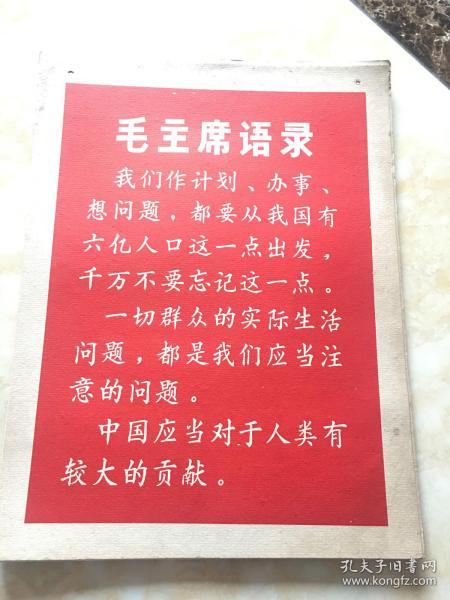 毛主席语录
我们作计划、办事、
想问题，都要从我国有
六亿人口这一点出发，
千万不要忘记这一点。
一切群众的实际生活
问题，都是我们应当注
意的问题。
中国应当对于人类有
较大的贡献。
孔夫子旧书网
www.kongfz.com